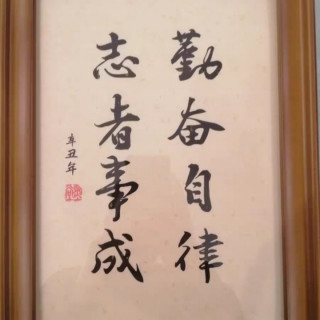 勤奋自律
志者事成
辛丑年